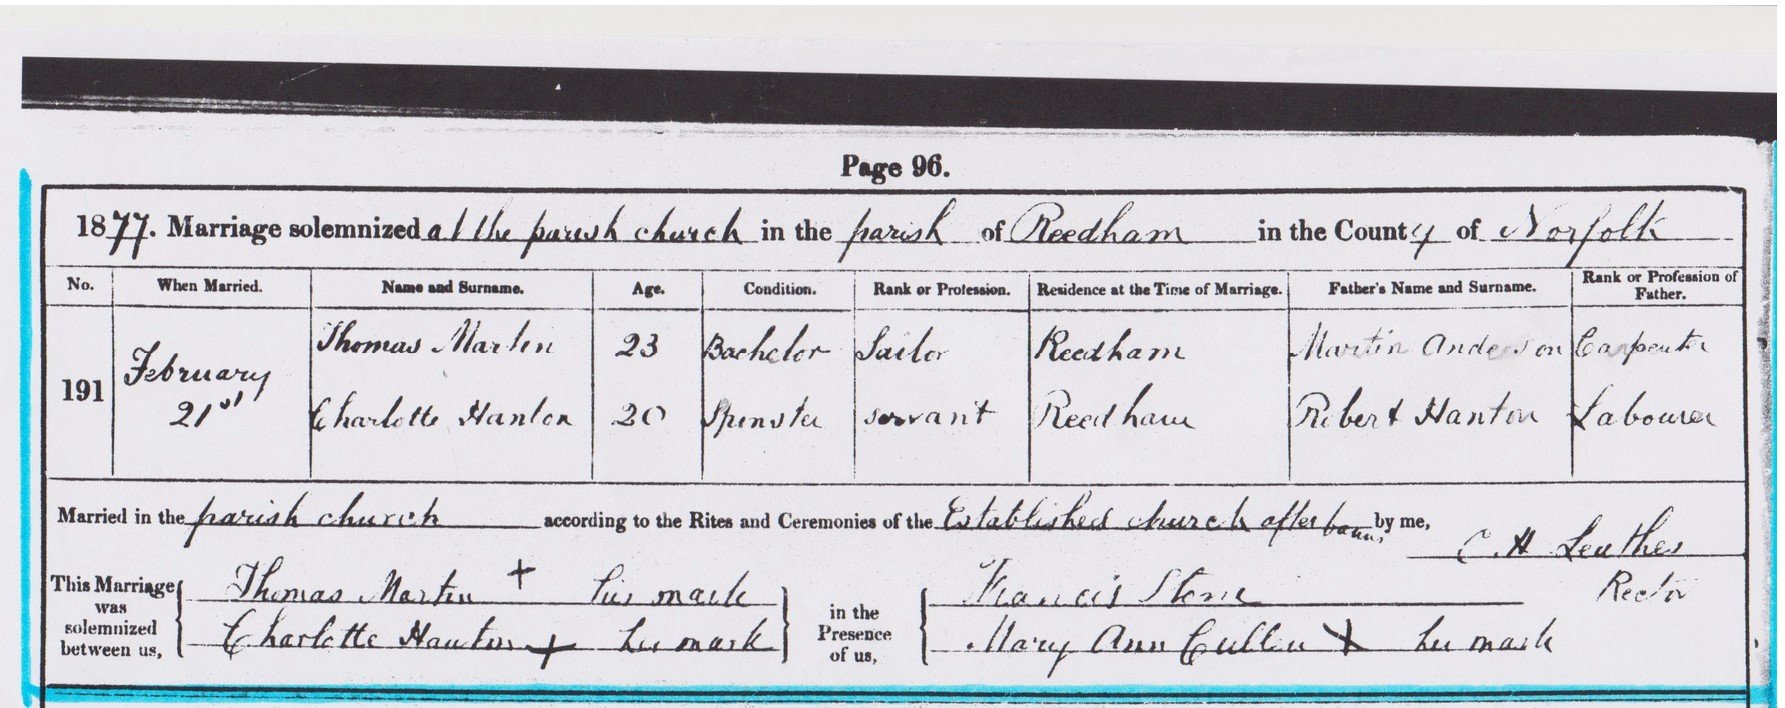 Page 96.
1877. Marriage solemnized at the parish church in the parish of Reedham in the County of Norfolk
No. When Married. Name and Surname. Age. Condition. Rank or Profession. Residence at the Time of Marriage. Father's Name and Surname. Rank or Profession of Father.
191 February 21st
Thomas Martin 23 Bachelor Sailor Reedham Martin Anderson Carpenter
Charlotte Hanton 20 Spinster servant Reedham Robert Hanton Labourer
Married in the parish church according to the Rites and Ceremonies of the Established church after banns by me,
C. H Leathes
Rector
This Marriage was solemnized between us,
Thomas Martin + his mark
Charlotte Hanton + her mark
in the Presence of us,
Francis Stone
Mary Ann Cullen X her mark